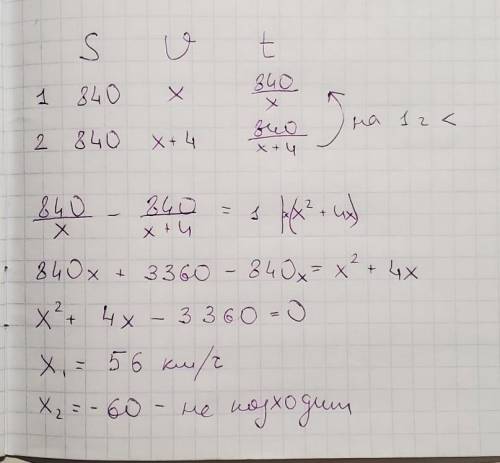 S υ t
1 840 x 840/x
2 840 x+4 840/(x+4) на 1 г <
840/x - 840/(x+4) = 1 |x(x² + 4x)
840x + 3360 - 840x = x² + 4x
x² + 4x - 3360 = 0
x₁ = 56 км/г
x₂ = -60 - не подходит